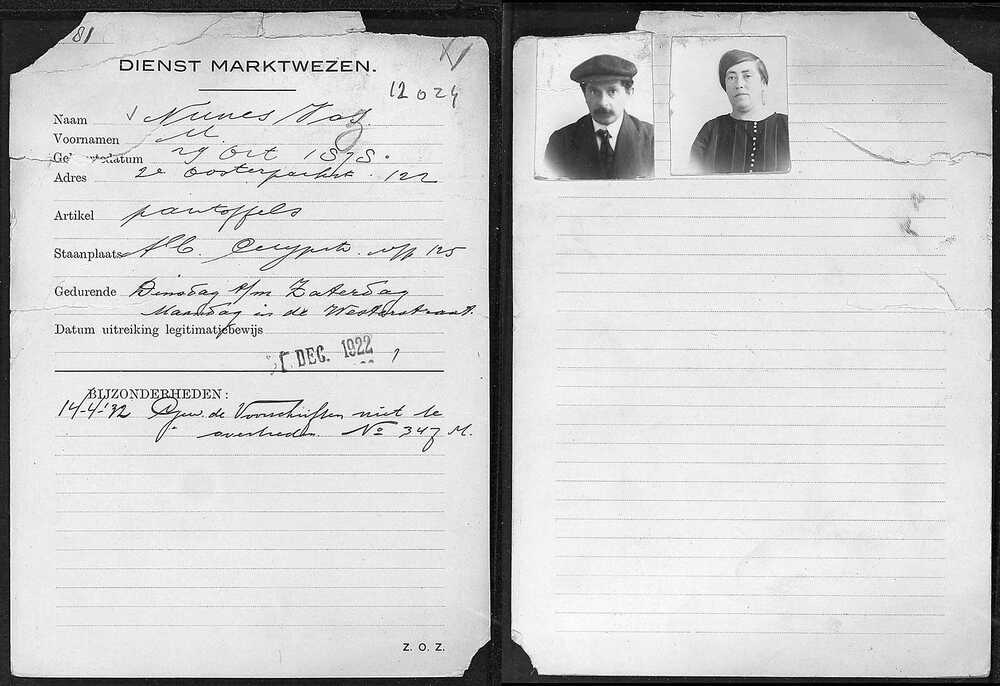 81
XI
DIENST MARKTWEZEN.
12024
Naam Nunes Vas
Voornamen M.
Ge tedatum 29 Oct 1878.
Adres 2e Oosterparkst. 122
Artikel pantoffels
Staanplaats Alb. Cuypstr. o/p 125
Gedurende Dinsdag t/m Zaterdag
Maandag in de Westerstraat.
Datum uitreiking legitimatiebewijs
DEC. 1922
BIJZONDERHEDEN:
14-4-'32 Gew. de Voorschriften niet te
overtreden. No 347 M.
Z. O. Z.